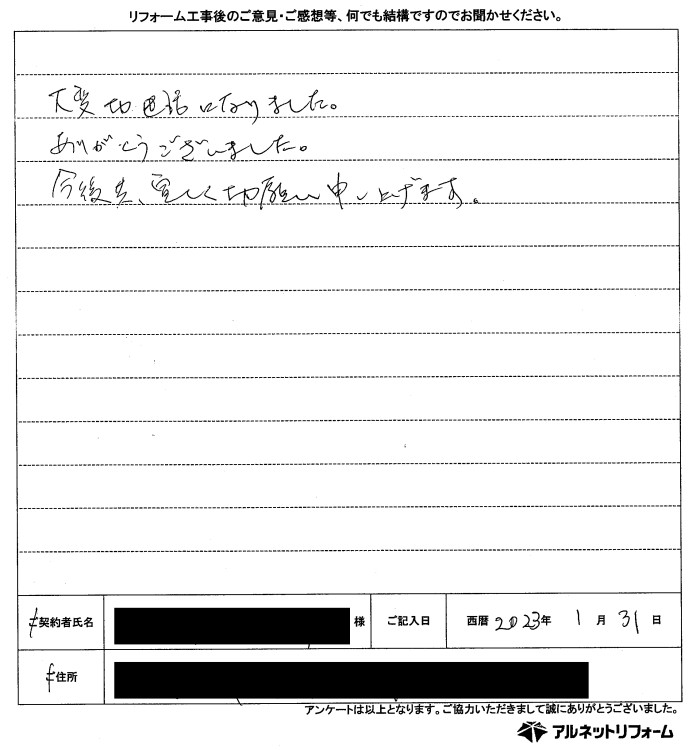 リフォーム工事後のご意見・ご感想等、何でも結構ですのでお聞かせください。
大変お世話になりました。
ありがとうございました。
今後共、宜しくお願い申し上げます。
ご契約者氏名 様 ご記入日 西暦 2023年 1月 31日
ご住所
アンケートは以上となります。ご協力いただきまして誠にありがとうございました。
アルネットリフォーム